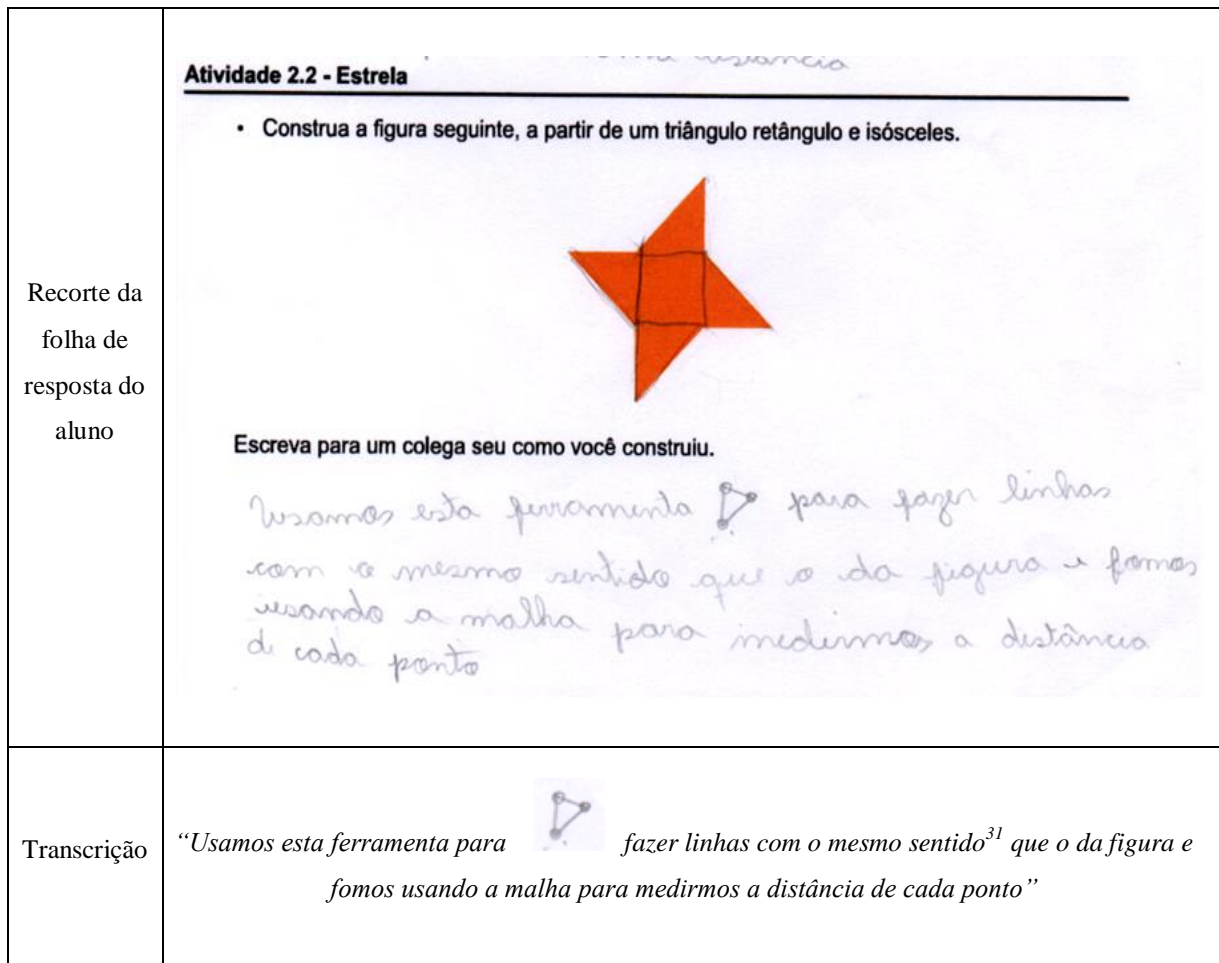 Recorte da
folha de
resposta do
aluno
distância
Atividade 2.2 - Estrela
• Construa a figura seguinte, a partir de um triângulo retângulo e isósceles.
Escreva para um colega seu como você construiu.
Usamos esta ferramenta para fazer linhas
com o mesmo sentido que o da figura e fomos
usando a malha para medirmos a distância
de cada ponto
Transcrição
“Usamos esta ferramenta para fazer linhas com o mesmo sentido31 que o da figura e
fomos usando a malha para medirmos a distância de cada ponto”